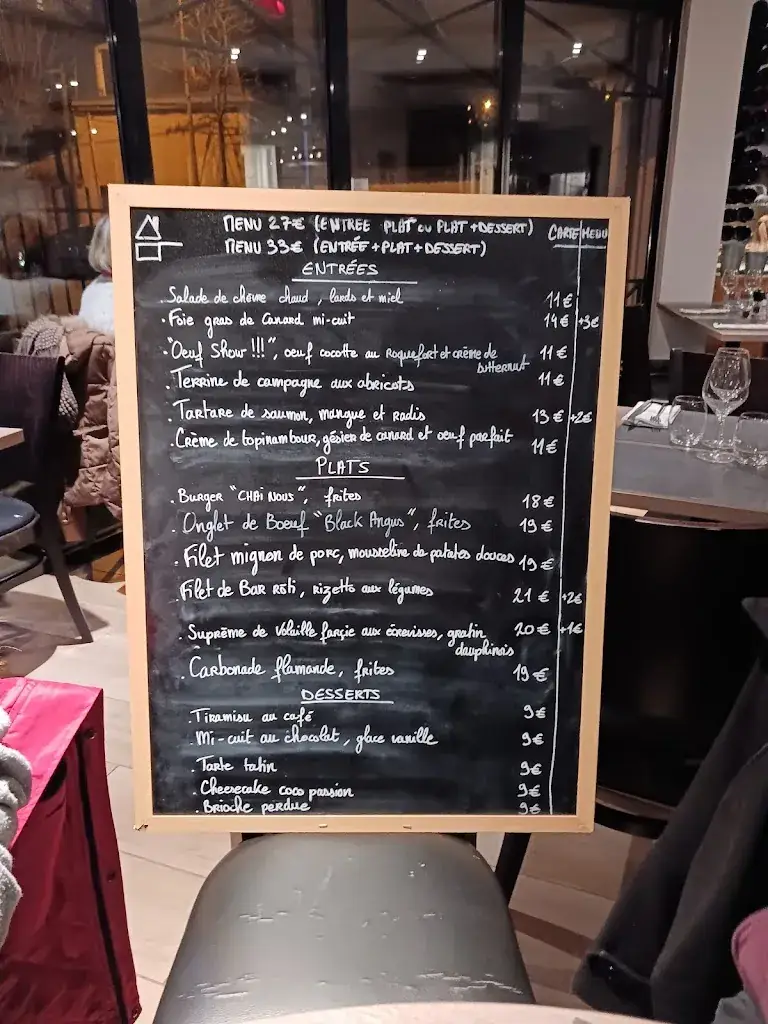 MENU 27€ (ENTREE PLAT ou PLAT+DESSERT) CARTE MENU
MENU 33€ (ENTRÉE+PLAT+DESSERT)
ENTRÉES
. Salade de chèvre chaud, lards et miel 11€
. Foie gras de Canard mi-cuit 14€ +3€
. "Oeuf Show !!!", oeuf cocotte au Roquefort et crème de 11€
butternut
. Terrine de campagne aux abricots 11€
. Tartare de saumon, mangue et radis 13€ +2€
. Crème de topinambour, gésier de canard et oeuf parfait 11€
PLATS
. Burger "CHAI NOUS", frites 18€
. Onglet de Boeuf "Black Angus", frites 19€
. Filet mignon de porc, mousseline de patates douces 19€
. Filet de Bar rôti, rizetto aux légumes 21€ +2€
. Suprême de Volaille farçie aux écrevisses, gratin 20€ +1€
dauphinois
. Carbonade flamande, frites 19€
DESSERTS
. Tiramisu au café 9€
. Mi-cuit au chocolat, glace vanille 9€
. Tarte tatin 9€
. Cheesecake coco passion 9€
. Brioche perdue 9€